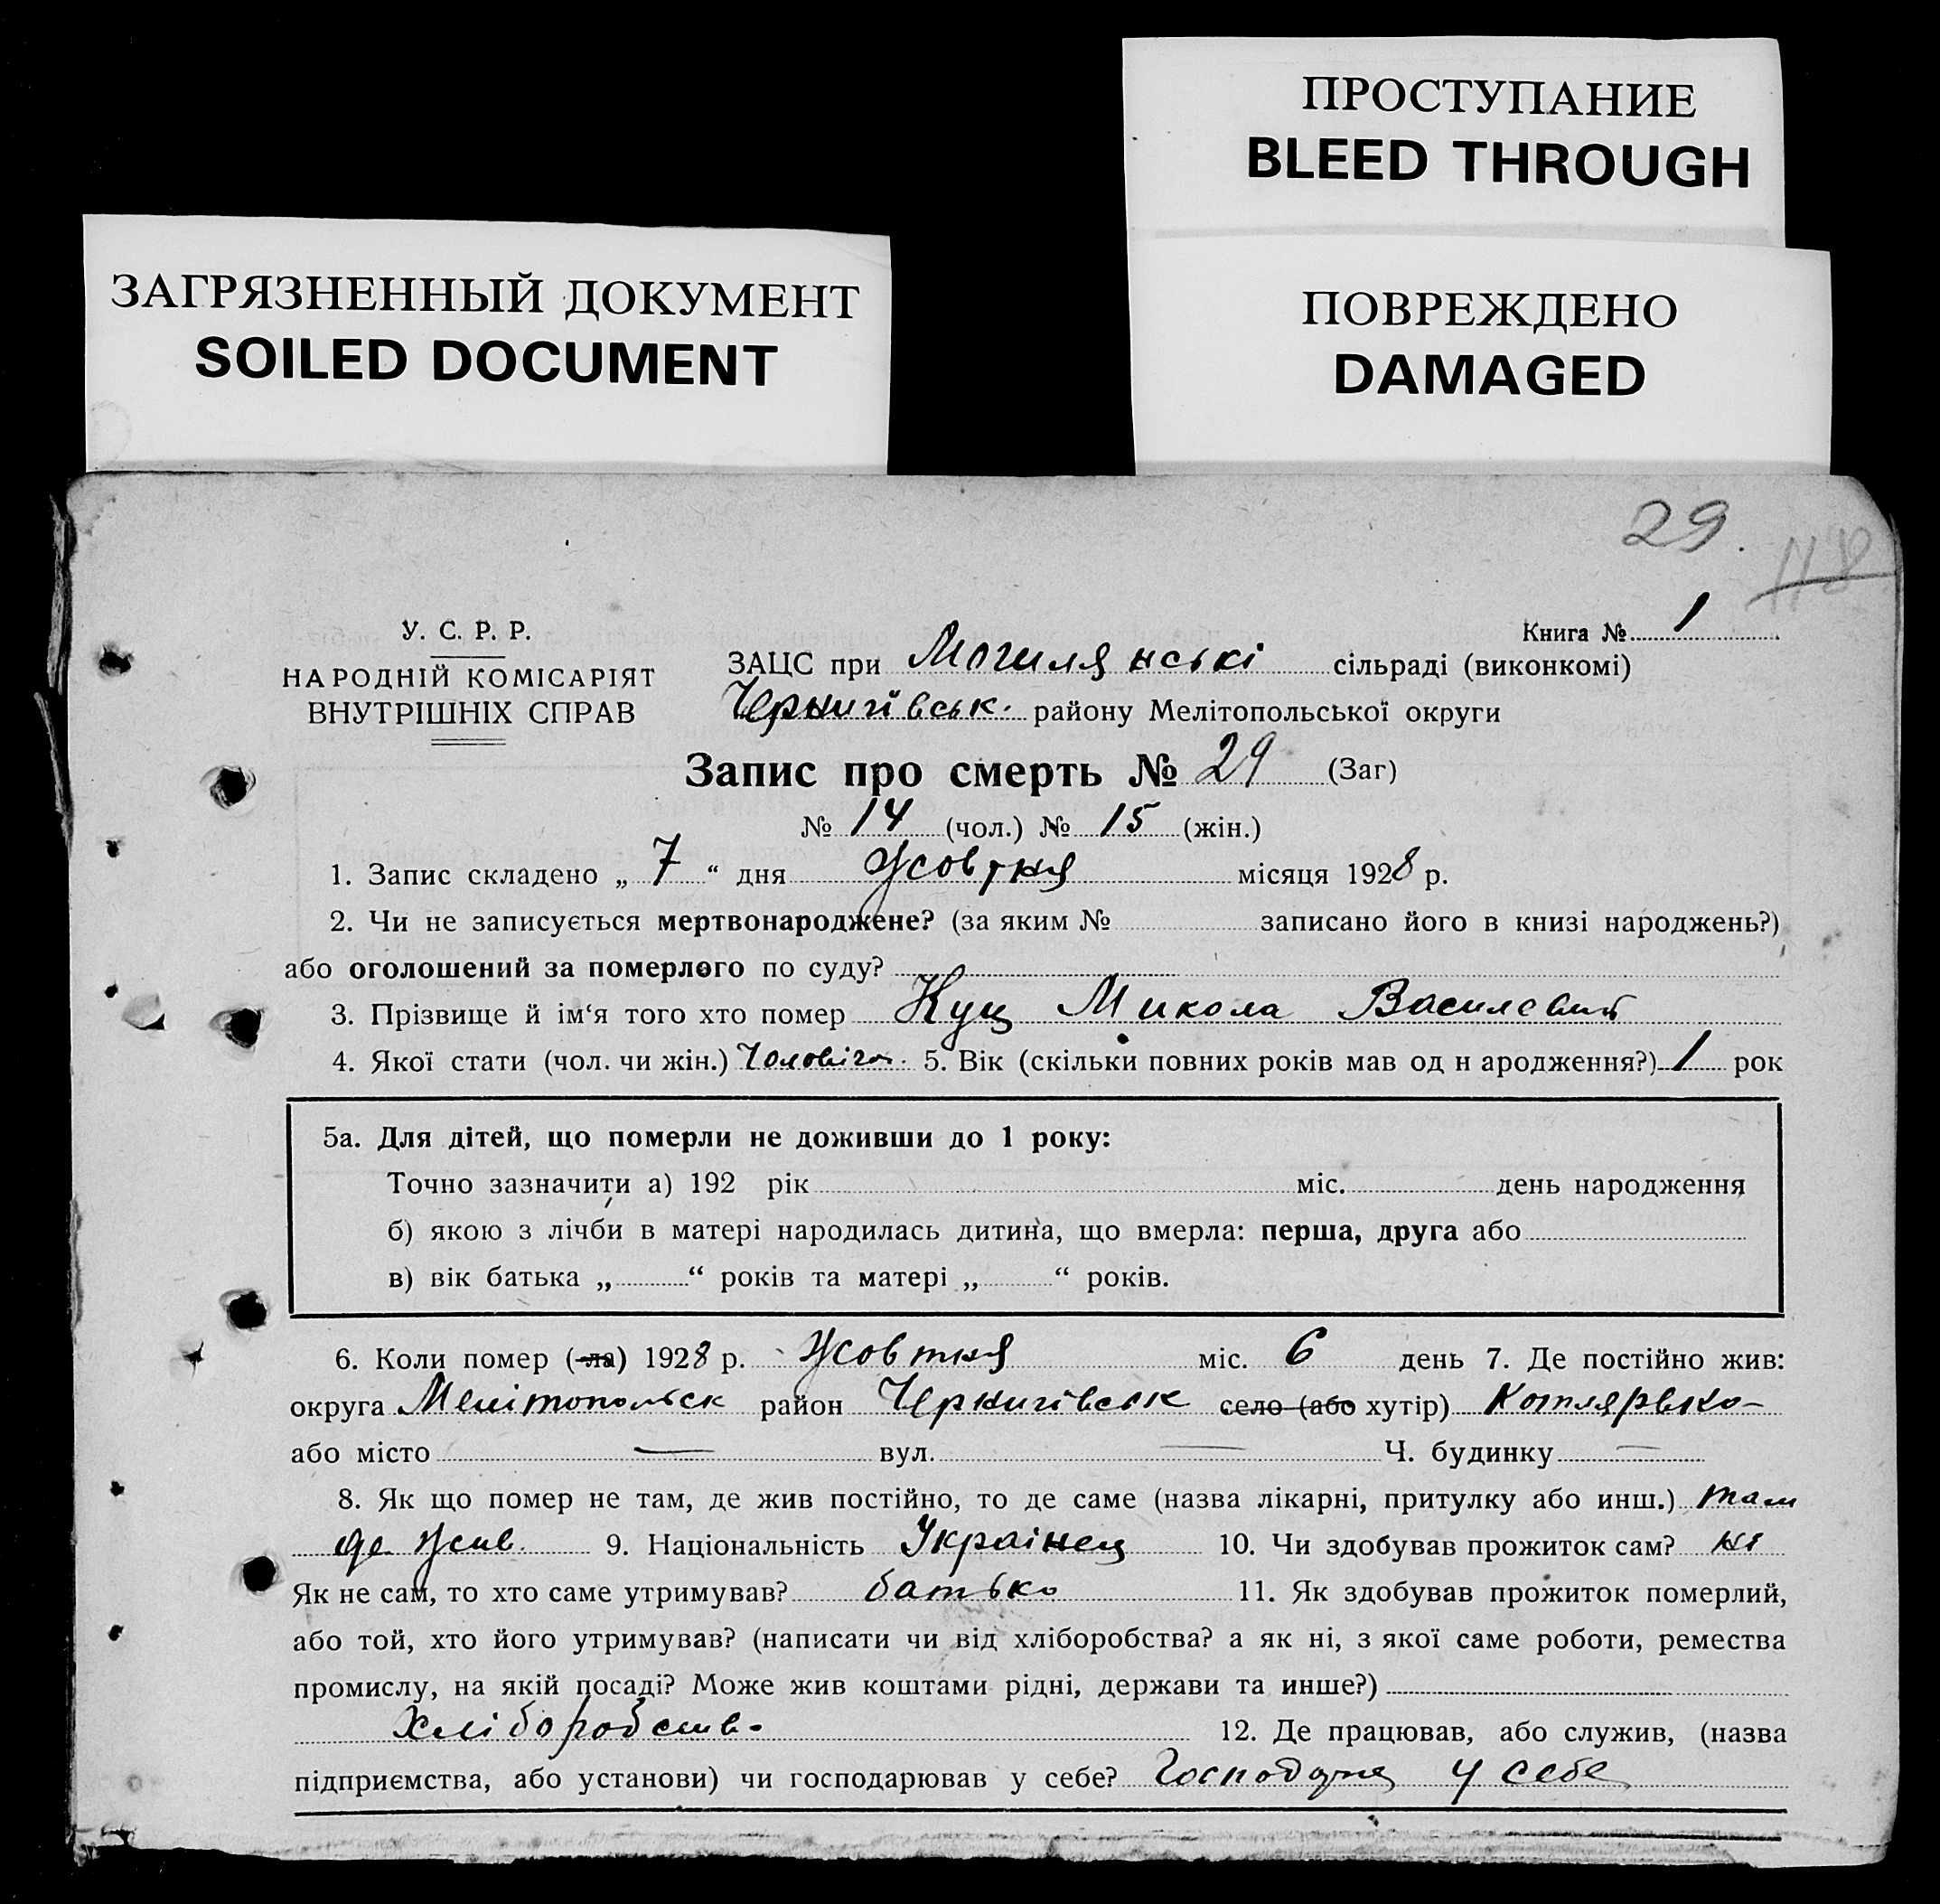 ПРОСТУПАНИЕ
BLEED THROUGH
ЗАГРЯЗНЕННЫЙ ДОКУМЕНТ
SOILED DOCUMENT
ПОВРЕЖДЕНО
DAMAGED
29.
118
У. С. Р. Р.
НАРОДНІЙ КОМІСАРІЯТ
ВНУТРІШНІХ СПРАВ
Книга № 1
ЗАЦС при Могилянські сільраді (виконкомі)
Чернигівськ. району Мелітопольської округи
Запис про смерть № 29 (Заг)
№ 14 (чол.) № 15 (жін.)
1. Запис складено „ 7 “ дня Жовтня місяця 1928 р.
2. Чи не записується мертвонароджене? (за яким № записано його в книзі народжень?)
або оголошений за померлого по суду?
3. Прізвище й ім‘я того хто помер Кущ Микола Василевич
4. Якої стати (чол. чи жін.) Чоловіча. 5. Вік (скільки повних років мав од н ародження?) 1 рок
5а. Для дітей, що померли не доживши до 1 року:
Точно зазначити а) 192 рік міс. день народження
б) якою з лічби в матері народилась дитина, що вмерла: перша, друга або
в) вік батька „ “ років та матері „ “ років.
6. Коли помер (-ла) 1928 р. Жовтня міс. 6 день 7. Де постійно жив:
округа Мелітопольськ район Чернигівськ село (або хутір)
або місто — вул. — Ч. будинку —
8. Як що помер не там, де жив постійно, то де саме (назва лікарні, притулку або инш.) там
де жив. 9. Національність Українец 10. Чи здобував прожиток сам? ні
Як не сам, то хто саме утримував? батько 11. Як здобував прожиток померлий,
або той, хто його утримував? (написати чи від хліборобства? а як ні, з якої саме роботи, ремества
промислу, на якій посаді? Може жив коштами рідні, держави та инше?)
Хліборобств. 12. Де працював, або служив, (назва
підприємства, або установи) чи господарював у себе? Господарює у себе